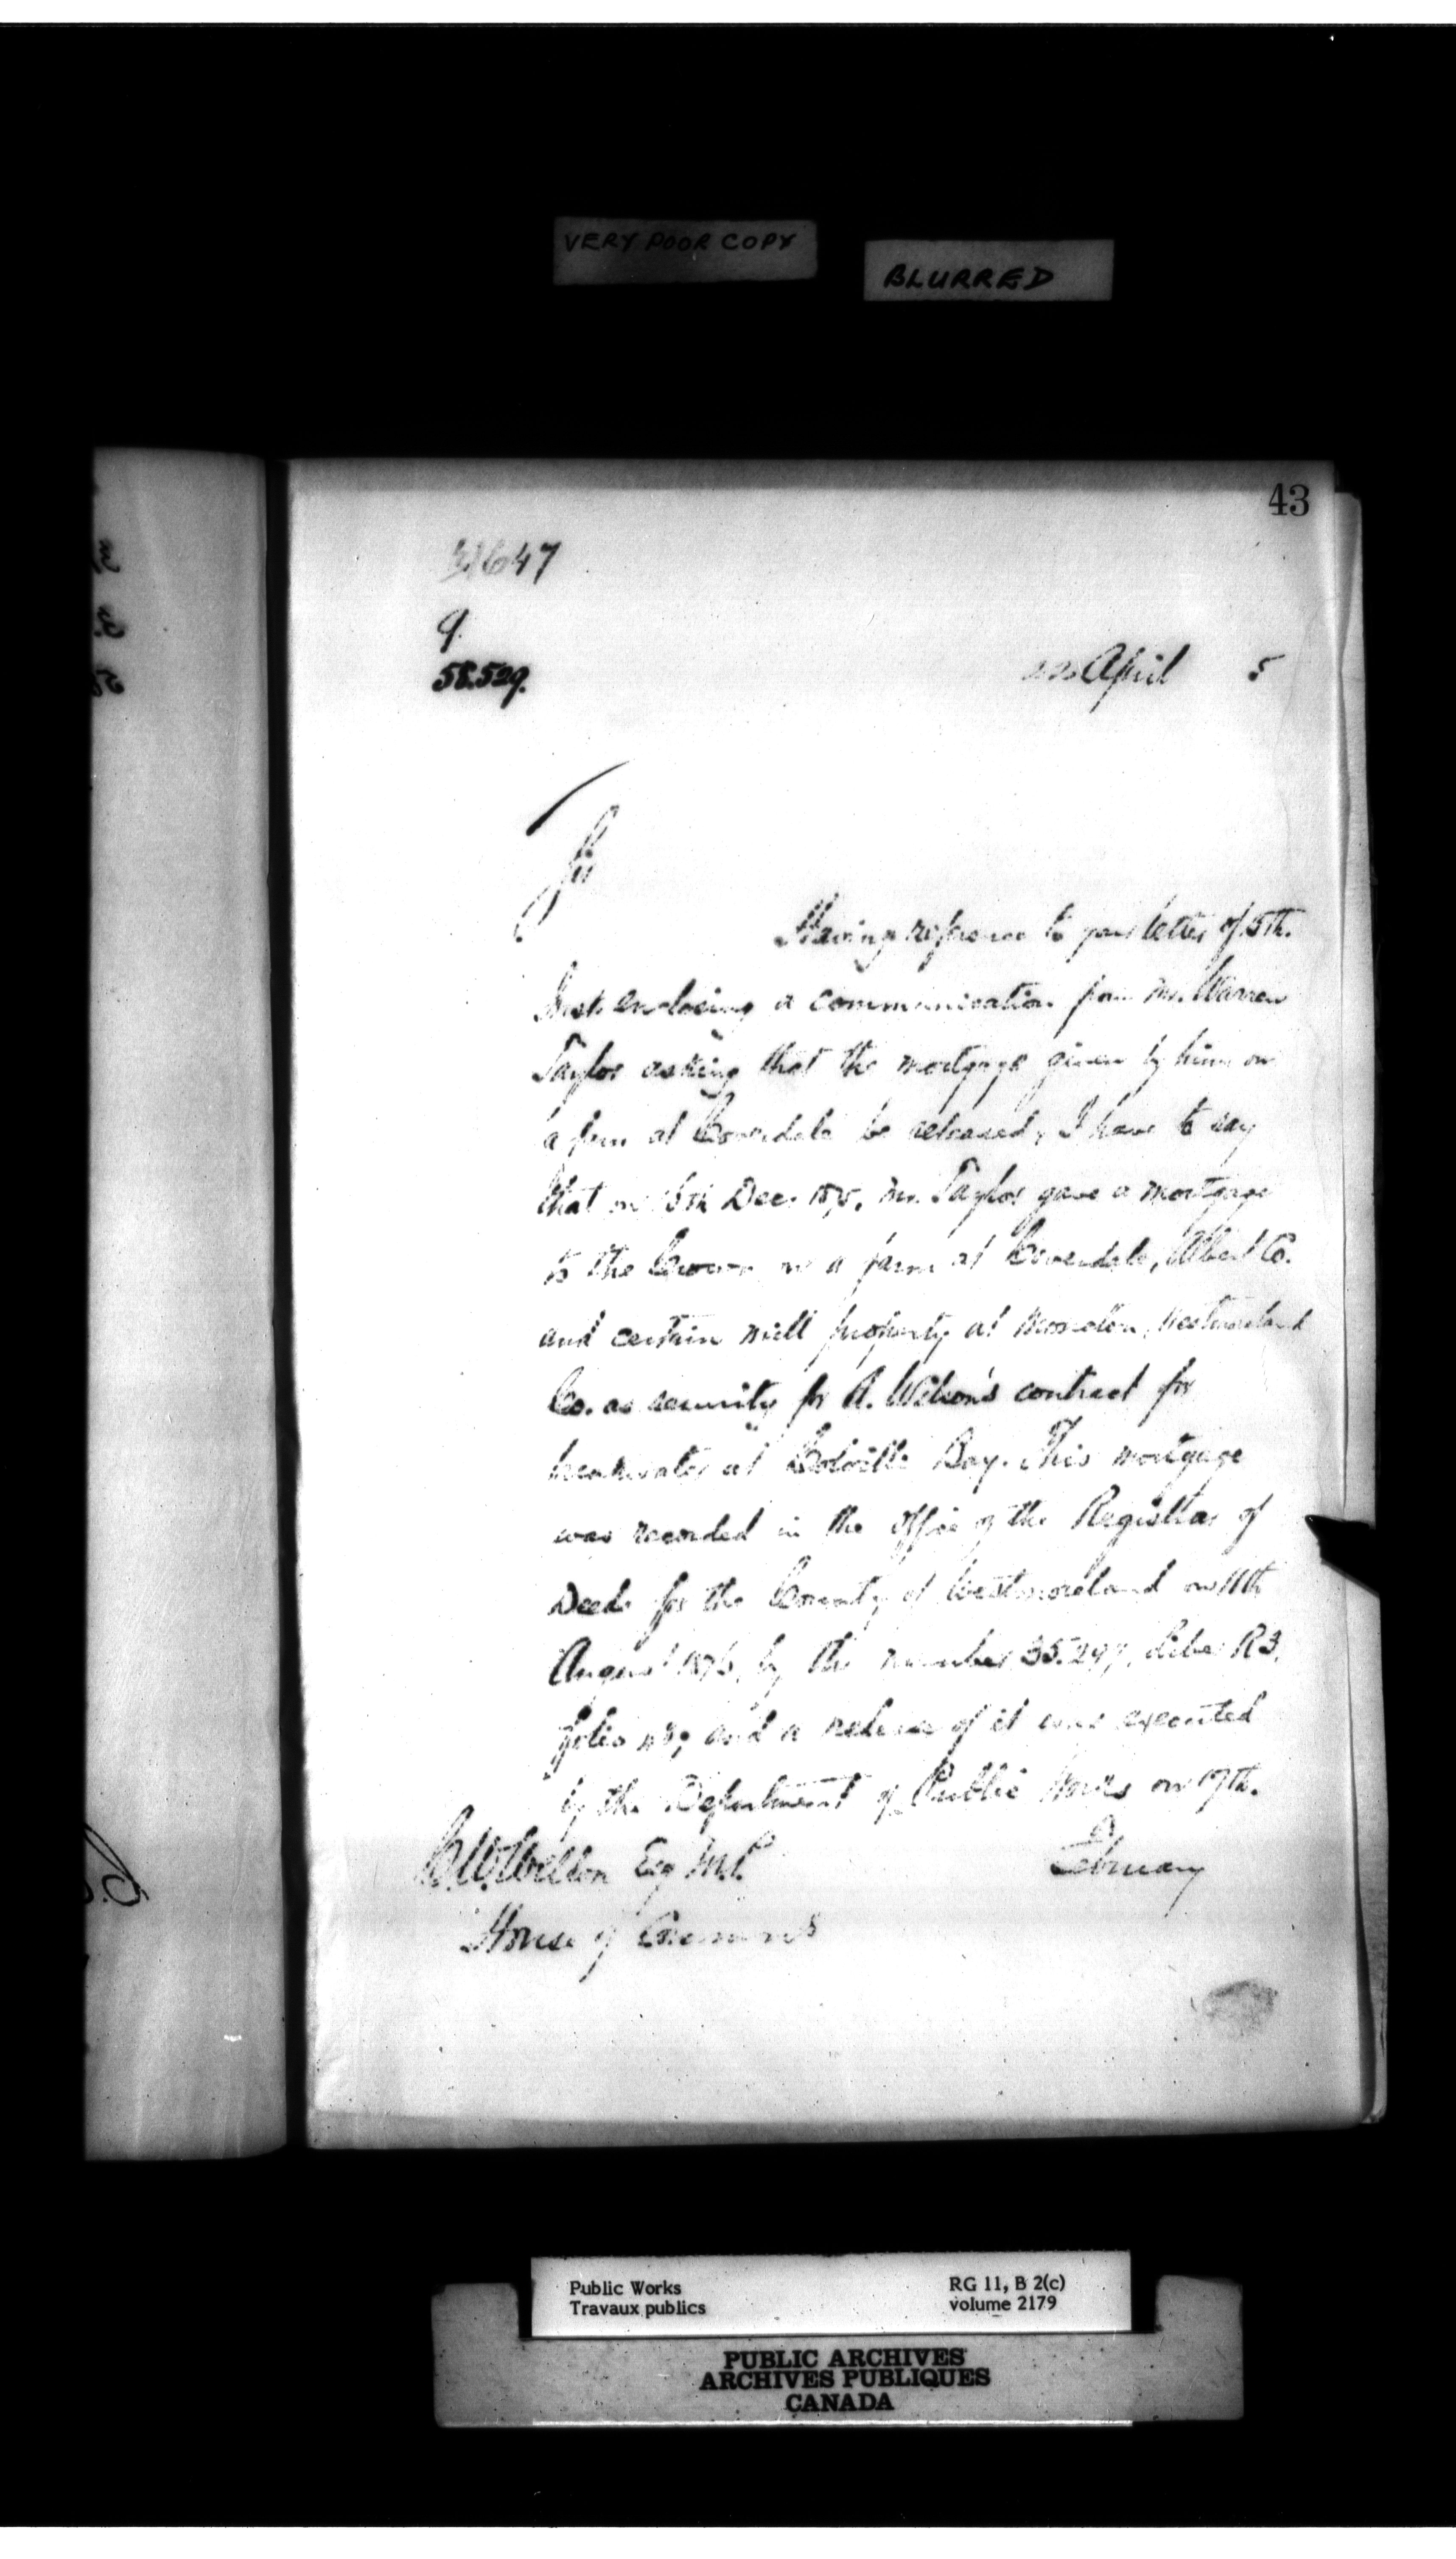 VERY POOR COPY
BLURRED
43
647
9.
58.529.
April 5
Sir
Having reference to your letter of 5th.
Inst. enclosing a communication from Mr. Warren
Taylor asking that the mortgage given by him on
a farm at Coverdale be released, I have to say
that on Dec. Mr. Taylor gave a mortgage
to the Crown on a farm at Coverdale, Albert Co.
and certain mill property at Moncton, Westmoreland
Co. as security for A. Wilson's contract for
breakwater at Colville Bay. This mortgage
was recorded in the office of the Registrar of
Deeds for the County of Westmoreland on 11th
August by the number 35.297, Liber R3,
folio and a release of it was executed
by the Department of Public Works on 17th.
February
C. W. Weldon Esq M.P.
House of Commons
Public Works
Travaux publics
RG 11, B 2(c)
volume 2179
PUBLIC ARCHIVES
ARCHIVES PUBLIQUES
CANADA